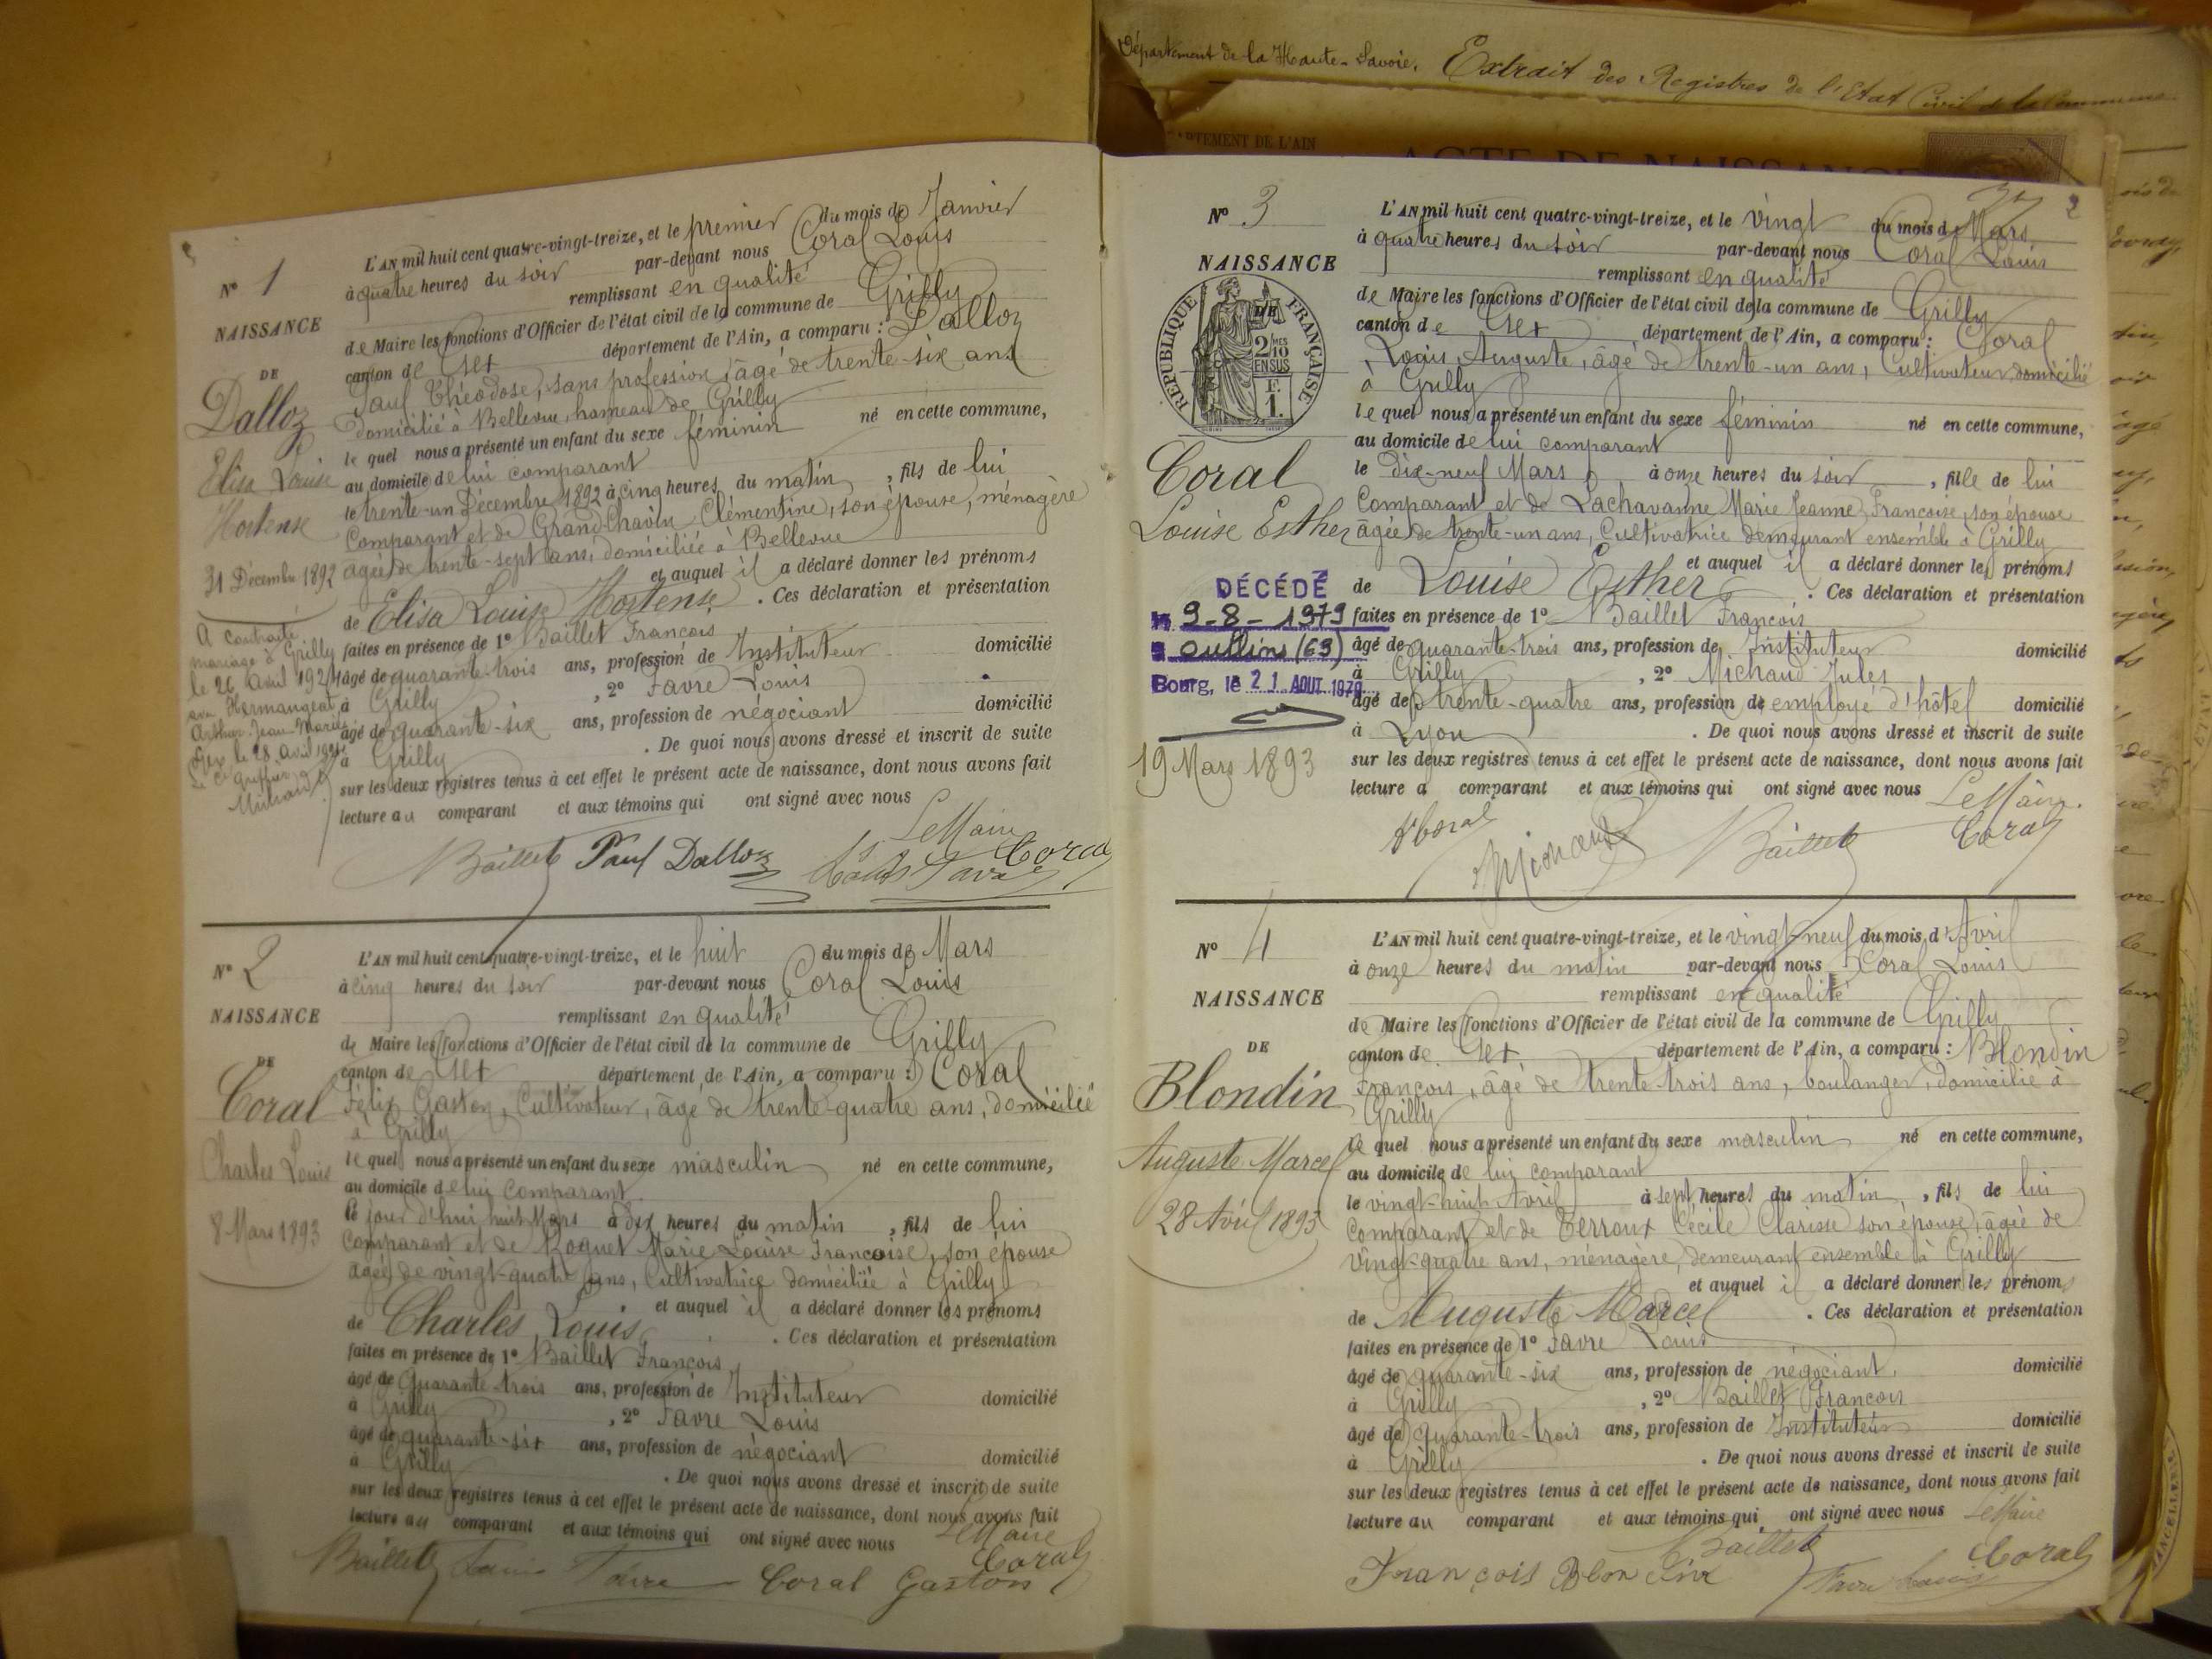 Département de la Haute-Savoie. Extrait des Registres de l'Etat Civil de la Commune
DÉPARTEMENT DE L'AIN
ACTE DE NAISSANCE
N° 1
NAISSANCE
DE
Dalloz
Elisa Louise
Hortense
31 Décembre 1892
A contracté
mariage à Grilly
le 26 avril 1924
avec Hermangeat
Arthur Jean Marie
Gex le 28 avril 1924
L'AN mil huit cent quatre-vingt-treize, et le premier du mois de Janvier
à quatre heures du soir par-devant nous Coral Louis
remplissant en qualité
de Maire les fonctions d'Officier de l'état civil de la commune de Grilly
canton de Gex département de l'Ain, a comparu : Dalloz
Paul Théodose, sans profession, âgé de trente-six ans
domicilié à Bellevue, hameau de Grilly
le quel nous a présenté un enfant du sexe féminin né en cette commune,
au domicile de lui comparant
le trente-un Décembre 1892 à cinq heures du matin, fils de lui
Comparant et de Grand-Chavin Clémentine, son épouse, ménagère
âgée de trente-sept ans, domiciliée à Bellevue
et auquel il a déclaré donner les prénoms
de Elisa Louise Hortense . Ces déclaration et présentation
faites en présence de 1° Baillet François
âgé de quarante-trois ans, profession de Instituteur domicilié
à Grilly , 2° Favre Louis
âgé de quarante-six ans, profession de négociant domicilié
à Grilly . De quoi nous avons dressé et inscrit de suite
sur les deux registres tenus à cet effet le présent acte de naissance, dont nous avons fait
lecture au comparant et aux témoins qui ont signé avec nous
Le Maire
Baillet Paul Dalloz Louis Favre Coral
N° 2
NAISSANCE
DE
Coral
Charles Louis
8 Mars 1893
L'AN mil huit cent quatre-vingt-treize, et le huit du mois de Mars
à cinq heures du soir par-devant nous Coral Louis
remplissant en qualité
de Maire les fonctions d'Officier de l'état civil de la commune de Grilly
canton de Gex département de l'Ain, a comparu : Coral
Félix Gaston, Cultivateur, âgé de trente-quatre ans, domicilié
à Grilly
le quel nous a présenté un enfant du sexe masculin né en cette commune,
au domicile de lui comparant
le jour d'hui huit Mars à dix heures du matin , fils de lui
Comparant et de Roquet Marie Louise Françoise, son épouse
âgée de vingt-quatre ans, Cultivatrice domiciliée à Grilly
et auquel il a déclaré donner les prénoms
de Charles Louis . Ces déclaration et présentation
faites en présence de 1° Baillet François
âgé de quarante-trois ans, profession de Instituteur domicilié
à Grilly , 2° Favre Louis
âgé de quarante-six ans, profession de négociant domicilié
à Grilly . De quoi nous avons dressé et inscrit de suite
sur les deux registres tenus à cet effet le présent acte de naissance, dont nous avons fait
lecture au comparant et aux témoins qui ont signé avec nous Le Maire
Baillet Louis Favre Coral Gaston Coral
2
N° 3
NAISSANCE
RÉPUBLIQUE FRANÇAISE
2/10 MES
EN SUS
F.
1.
DE
Coral
Louise Esther
DÉCÉDÉ
9-8-1979
Oullins (69)
Bourg, le 21 AOUT 1979
19 Mars 1893
L'AN mil huit cent quatre-vingt-treize, et le vingt du mois de Mars
à quatre heures du soir par-devant nous Coral Louis
remplissant en qualité
de Maire les fonctions d'Officier de l'état civil de la commune de Grilly
canton de Gex département de l'Ain, a comparu : Coral
Louis Auguste, âgé de trente-un ans, Cultivateur domicilié
à Grilly
le quel nous a présenté un enfant du sexe féminin né en cette commune,
au domicile de lui comparant
le dix-neuf Mars à onze heures du soir , fille de lui
Comparant et de Lachavanne Marie Jeanne Françoise, son épouse
âgée de trente-un ans, Cultivatrice demeurant ensemble à Grilly
et auquel il a déclaré donner les prénoms
de Louise Esther . Ces déclaration et présentation
faites en présence de 1° Baillet François
âgé de quarante-trois ans, profession de Instituteur domicilié
à Grilly , 2° Michaud Jules
âgé de trente-quatre ans, profession de employé d'hôtel domicilié
à Lyon . De quoi nous avons dressé et inscrit de suite
sur les deux registres tenus à cet effet le présent acte de naissance, dont nous avons fait
lecture a comparant et aux témoins qui ont signé avec nous Le Maire.
Coral Michaud Baillet Coral
N° 4
NAISSANCE
DE
Blondin
Auguste Marcel
28 Avril 1893
L'AN mil huit cent quatre-vingt-treize, et le vingt-neuf du mois d'Avril
à onze heures du matin par-devant nous Coral Louis
remplissant en qualité
de Maire les fonctions d'Officier de l'état civil de la commune de Grilly
canton de Gex département de l'Ain, a comparu : Blondin
François, âgé de trente trois ans, boulanger, domicilié à
Grilly
le quel nous a présenté un enfant du sexe masculin né en cette commune,
au domicile de lui comparant
le vingt-huit Avril à sept heures du matin , fils de lui
Comparant et de Terroux Cécile Clarisse son épouse, âgée de
Vingt-quatre ans, ménagère, demeurant ensemble à Grilly
et auquel il a déclaré donner les prénoms
de Auguste Marcel . Ces déclaration et présentation
faites en présence de 1° Favre Louis
âgé de quarante-six ans, profession de négociant domicilié
à Grilly , 2° Baillet François
âgé de quarante-trois ans, profession de Instituteur domicilié
à Grilly . De quoi nous avons dressé et inscrit de suite
sur les deux registres tenus à cet effet le présent acte de naissance, dont nous avons fait
lecture au comparant et aux témoins qui ont signé avec nous Le Maire
François Blondin Baillet Favre Louis Coral